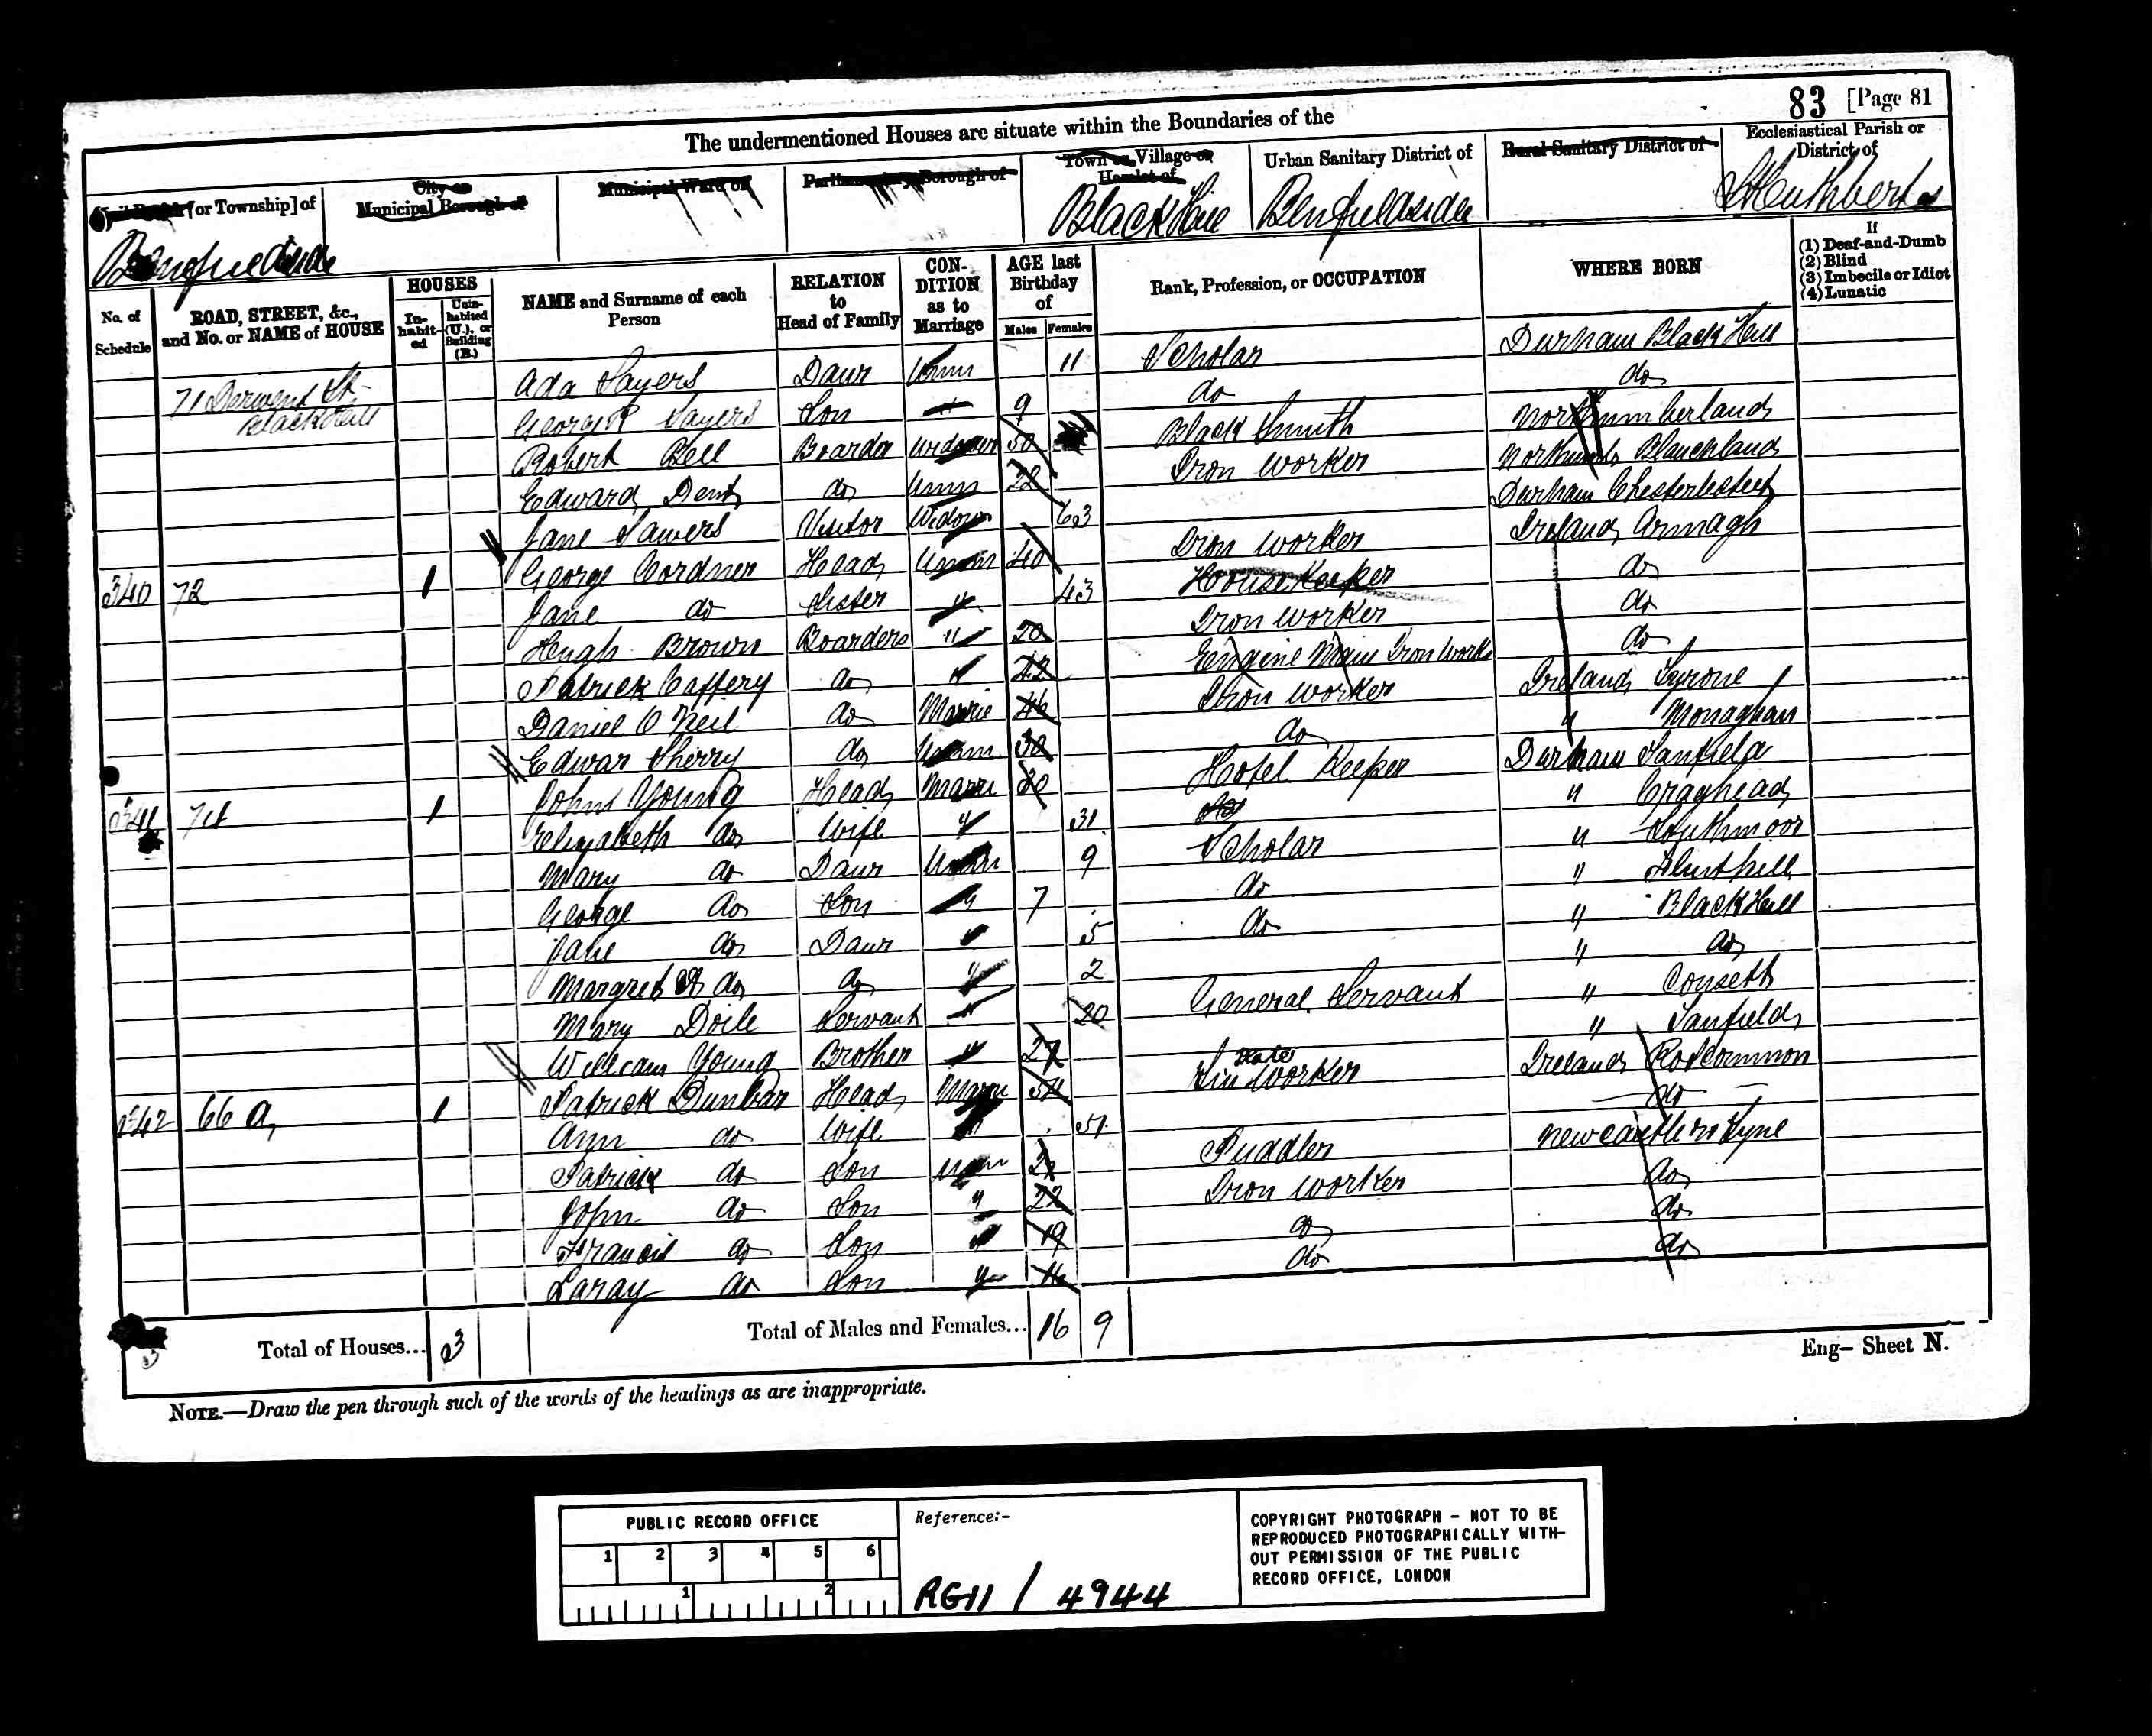 83 [Page 81
The undermentioned Houses are situate within the Boundaries of the
[or Township] of
City or
Municipal Borough of
Municipal Ward of
Parliamentary Borough of
Town or Village or
Hamlet of
Urban Sanitary District of
Rural Sanitary District of
Ecclesiastical Parish or
District of
Benfieldside
Black Hill
Benfieldside
St Cuthberts
No. of
Schedule
ROAD, STREET, &c.,
and No. or NAME of HOUSE
HOUSES
In-
habit-
ed
Unin-
habited
(U.), or
Building
(B.)
NAME and Surname of each
Person
RELATION
to
Head of Family
CON-
DITION
as to
Marriage
AGE last
Birthday
of
Males Females
Rank, Profession, or OCCUPATION
WHERE BORN
If
(1) Deaf-and-Dumb
(2) Blind
(3) Imbecile or Idiot
(4) Lunatic
71 Derwent St. Ada Sayers Daur Unm 11 Scholar Durham Black Hill
Black Hill George R Sayers Son " 9 do do
Robert Bell Boarder Widower 50 Black Smith Northumberland
Edward Dent do Unm 22 Iron Worker Northumb Blanchland
Jane Sawers Visitor Widow 63 Durham Chesterlestreet
340 72 1 George Cordner Head Unm 40 Iron Worker Ireland Armagh
Jane do Sister " 43 House Keeper do
Hugh Brown Boarders " 20 Iron Worker do
Patrick Caffery do " 22 Engine Iron Works do
Daniel O Neil do Marrie 46 Iron Worker Ireland Tyrone
Edwar Sherry do Unm 30 do " Monaghan
341 74 1 John Young Head Marri 30 Hotel Keeper Durham Tanfield
Elizabeth do Wife " 31 " Craghead
Mary do Daur Unm 9 Scholar " Southmoor
George do Son " 7 do " Flinthill
Jane do Daur " 5 do " Black Hill
Margret A do do " 2 " do
Mary Doile Servant " 20 General Servant " Consett
William Young Brother " 27 " Tanfield
342 66 a 1 Patrick Dunbar Head Marri 54 Tin Plate Worker Ireland Roscommon
Ann do Wife " 51 do
Patrick do Son Unm Puddler Newcastle on Tyne
John do Son " 22 Iron Worker do
Francis do Son " 19 do do
Laray do Son " 16 do do
Total of Houses... 3
Total of Males and Females... 16 9
Eng- Sheet N.
NOTE.—Draw the pen through such of the words of the headings as are inappropriate.
PUBLIC RECORD OFFICE
1 2 3 4 5 6
1 2
Reference:-
RG11 / 4944
COPYRIGHT PHOTOGRAPH - NOT TO BE
REPRODUCED PHOTOGRAPHICALLY WITH-
OUT PERMISSION OF THE PUBLIC
RECORD OFFICE, LONDON